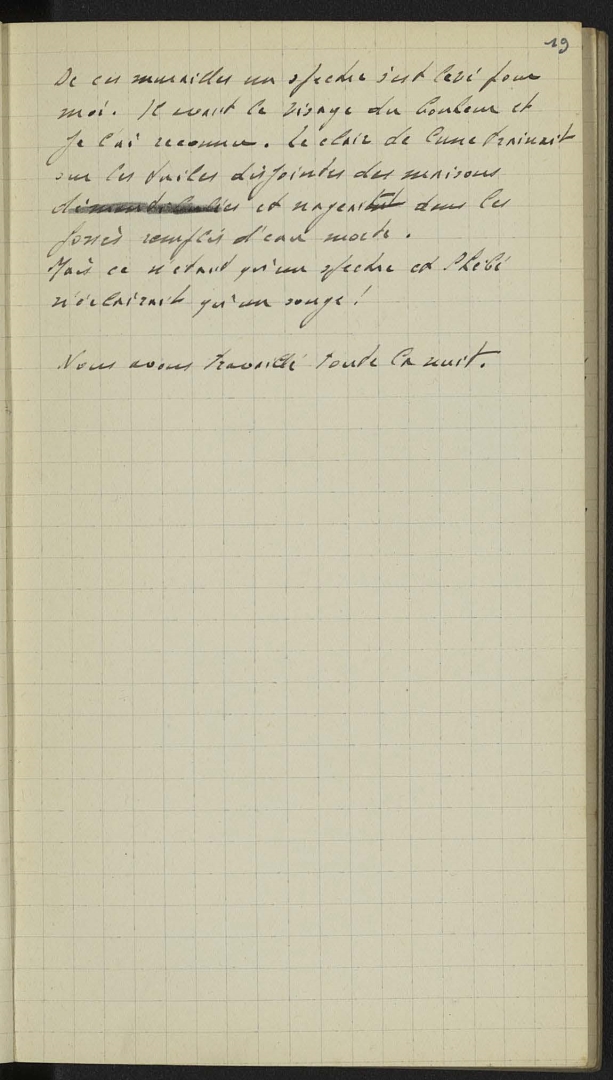 19
De ces murailles un spectre s'est levé pour
moi. Il avait le visage du bonheur et
je l'ai reconnu. Le clair de lune trainait
sur les tuiles disjointes des maisons
et nageait dans les
fossés remplis d'eau morte.
Mais ce n'etait qu'un spectre et Phébé
n'éclairait qu'un songe !
Nous avons travaillé toute la nuit.